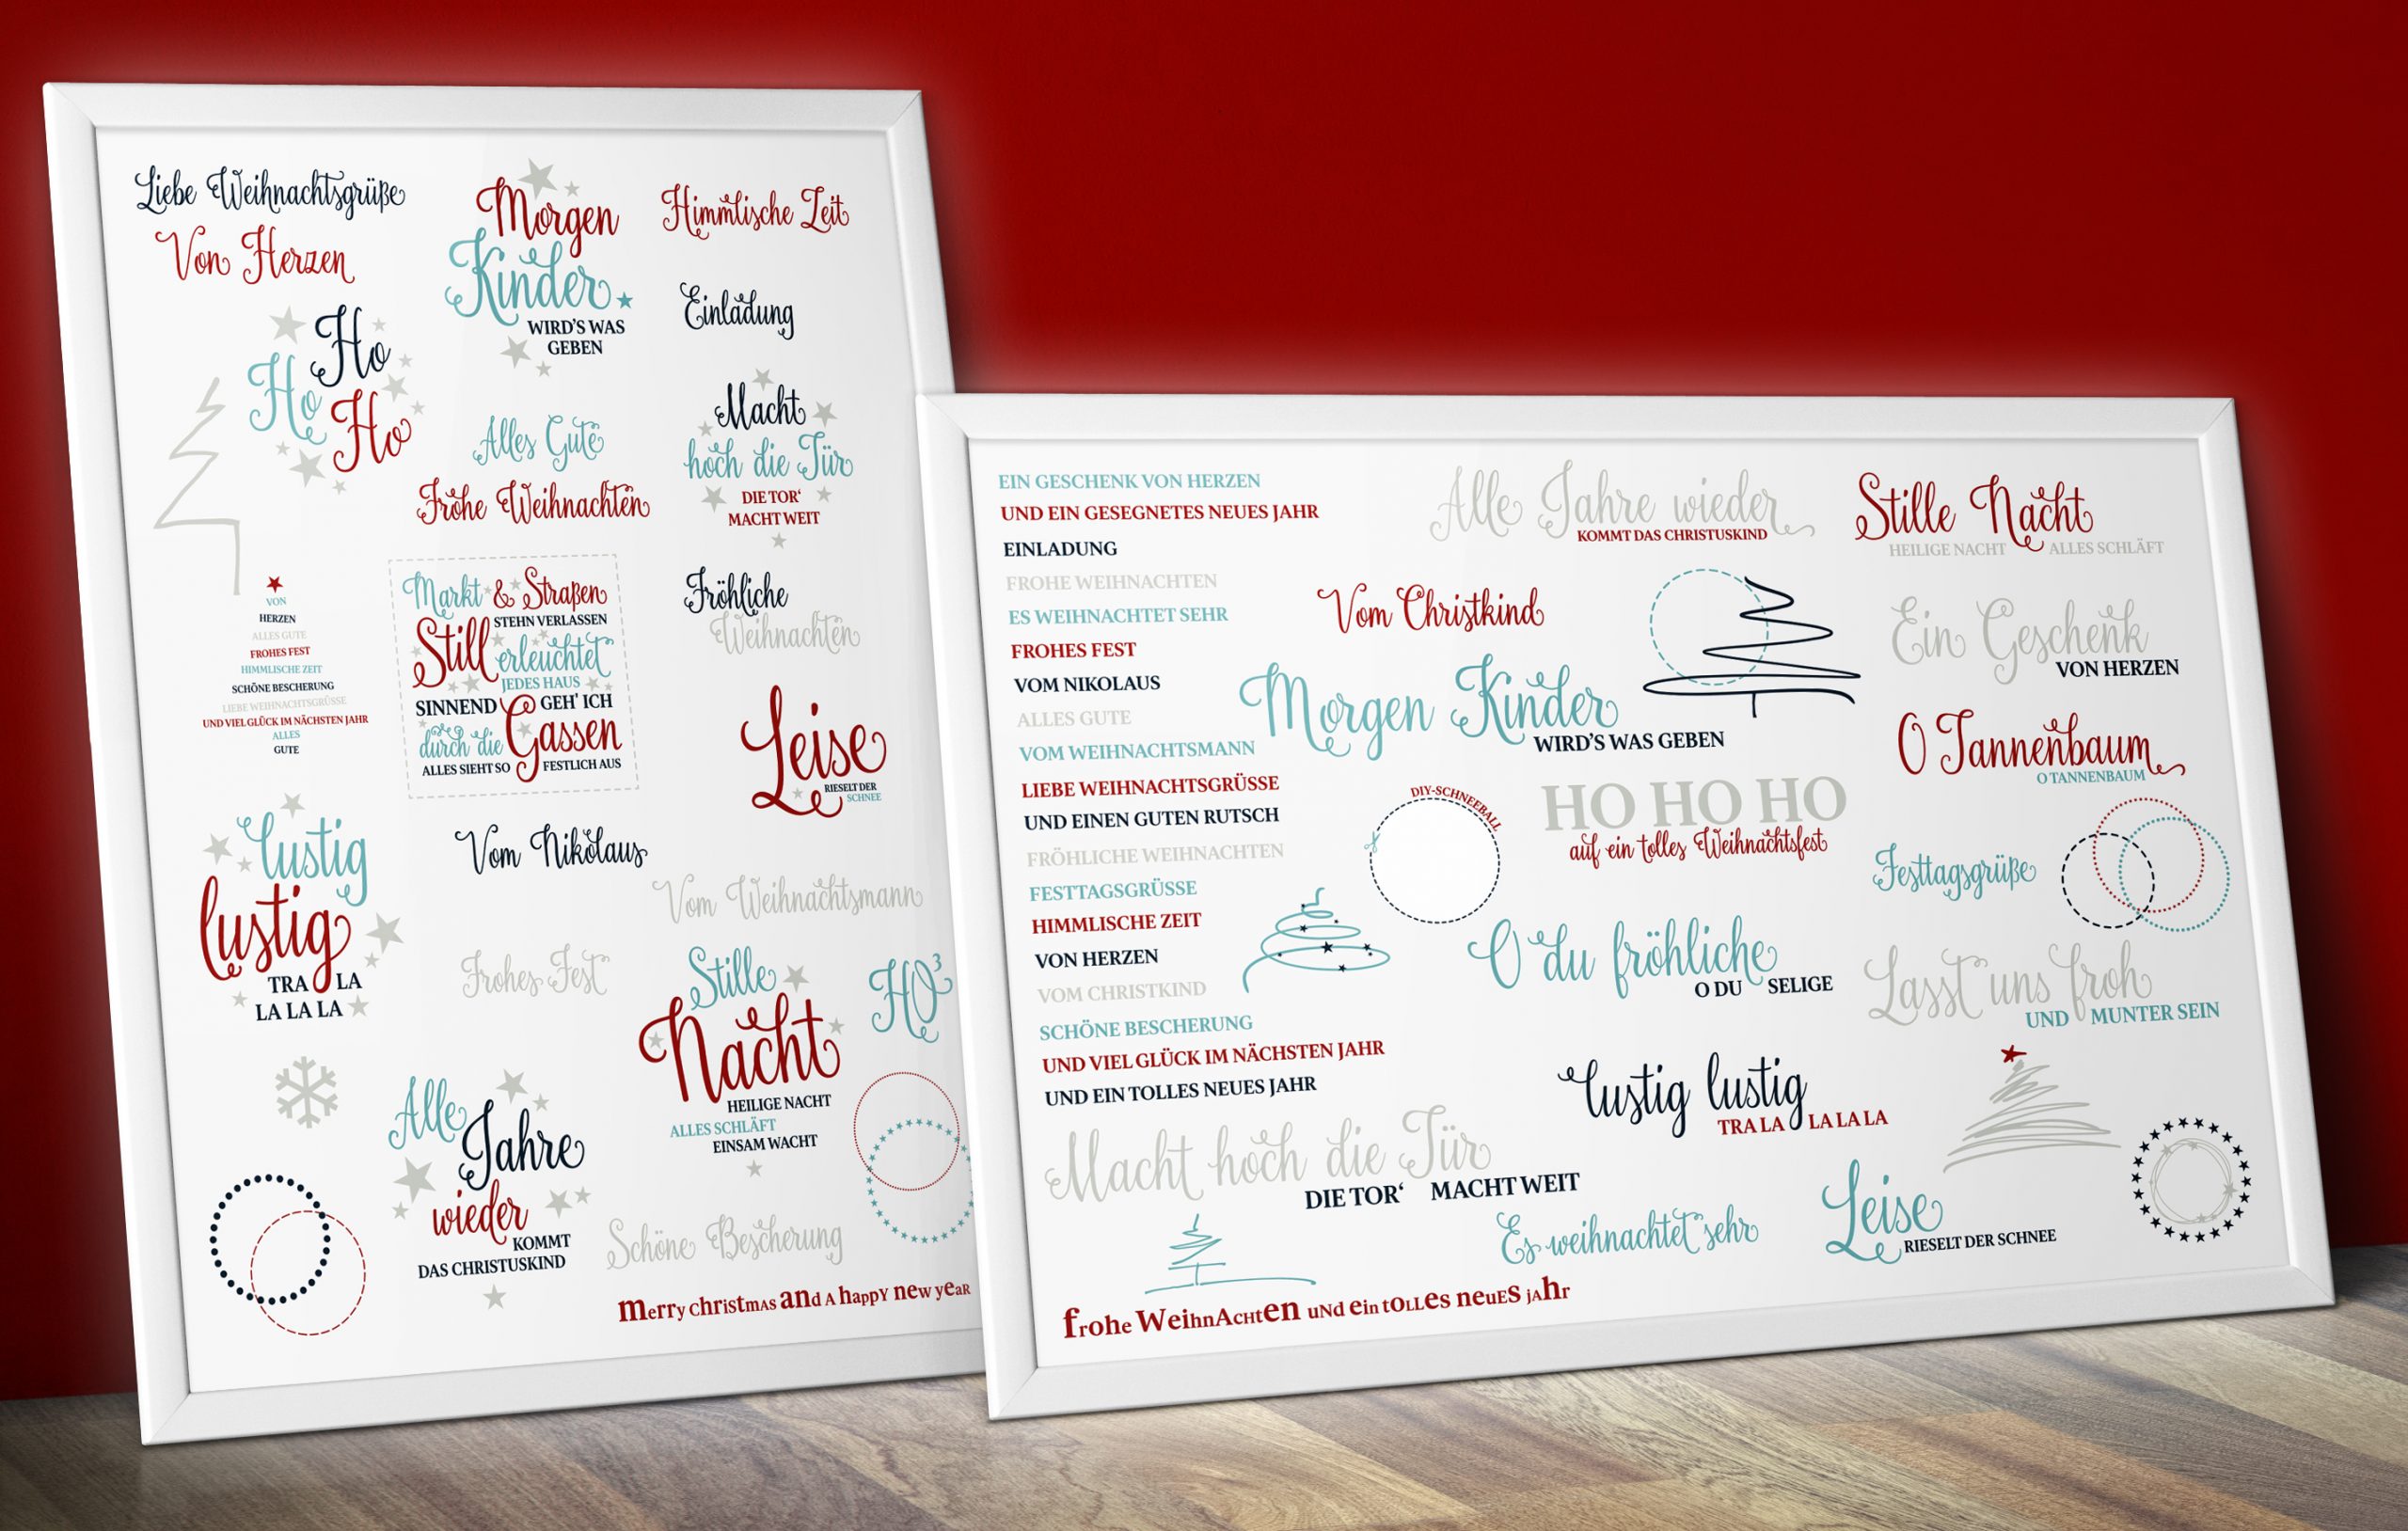 Liebe Weihnachtsgrüße
Von Herzen
Morgen
Kinder
WIRD'S WAS
GEBEN
Himmlische Zeit
Einladung
Ho
Ho
Ho
Alles Gute
Frohe Weihnachten
Macht
hoch die Tür
DIE TOR'
MACHT WEIT
VON
HERZEN
ALLES GUTE
FROHES FEST
HIMMLISCHE ZEIT
SCHÖNE BESCHERUNG
LIEBE WEIHNACHTSGRÜSSE
UND VIEL GLÜCK IM NÄCHSTEN JAHR
ALLES
GUTE
Markt & Straßen
STEHN VERLASSEN
Still erleuchtet
JEDES HAUS
SINNEND GEH' ICH
durch die Gassen
ALLES SIEHT SO FESTLICH AUS
Fröhliche
Weihnachten
Leise
RIESELT DER
SCHNEE
lustig
lustig
TRA LA
LA LA LA
Vom Nikolaus
Vom Weihnachtsmann
Frohes Fest
Stille
Nacht
HEILIGE NACHT
ALLES SCHLÄFT
EINSAM WACHT
HO³
Alle
Jahre
wieder
KOMMT
DAS CHRISTUSKIND
Schöne Bescherung
merry ChristmAs and A happY new yeaR
EIN GESCHENK VON HERZEN
UND EIN GESEGNETES NEUES JAHR
EINLADUNG
FROHE WEIHNACHTEN
ES WEIHNACHTET SEHR
FROHES FEST
VOM NIKOLAUS
ALLES GUTE
VOM WEIHNACHTSMANN
LIEBE WEIHNACHTSGRÜSSE
UND EINEN GUTEN RUTSCH
FRÖHLICHE WEIHNACHTEN
FESTTAGSGRÜSSE
HIMMLISCHE ZEIT
VON HERZEN
VOM CHRISTKIND
SCHÖNE BESCHERUNG
UND VIEL GLÜCK IM NÄCHSTEN JAHR
UND EIN TOLLES NEUES JAHR
Alle Jahre wieder
KOMMT DAS CHRISTUSKIND
Stille Nacht
HEILIGE NACHT ALLES SCHLÄFT
Vom Christkind
Ein Geschenk
VON HERZEN
Morgen Kinder
WIRD'S WAS GEBEN
O Tannenbaum
O TANNENBAUM
DIY-SCHNEEBALL
HO HO HO
auf ein tolles Weihnachtsfest
Festtagsgrüße
O du fröhliche
O DU SELIGE
Lasst uns froh
UND MUNTER SEIN
Lustig lustig
TRA LA LA LA LA
Macht hoch die Tür
DIE TOR' MACHT WEIT
Es weihnachtet sehr
Leise
RIESELT DER SCHNEE
frohe WeihnAchtEn uNd ein toLLes neuEs jAhr